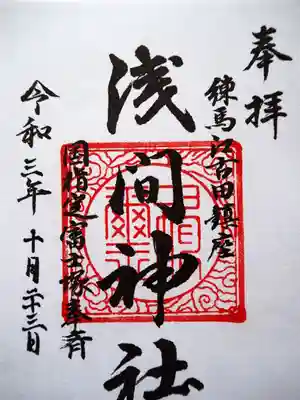 奉拝
練馬江古田鎮座
浅間神社
国指定富士塚奉斎
令和三年 十月二十三日